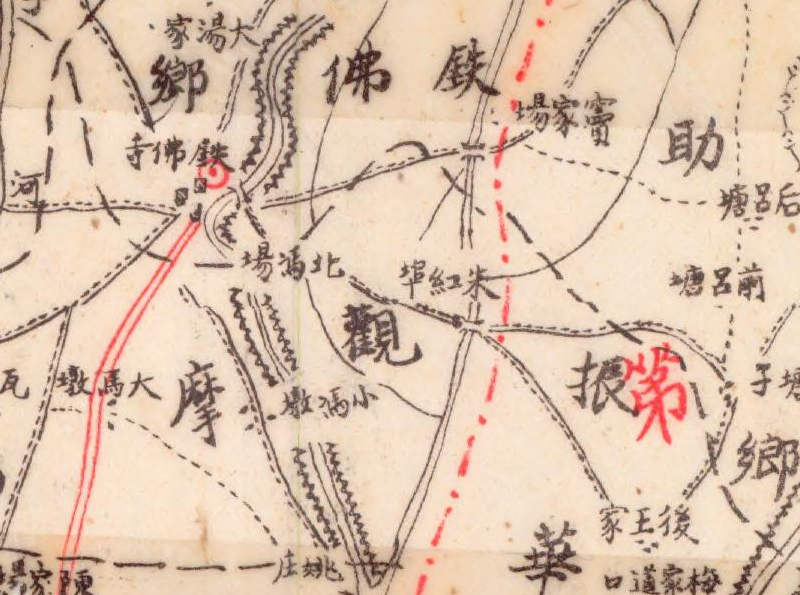 大湯家
鄉
鉄佛
竇家場
助
鉄佛寺
河
后呂塘
北馮場
朱紅埠
前呂塘
觀
振
第
瓦
大馮墩
摩
小馮墩
塘子
鄉
後王家
華
姚庄
陳家場
梅家道口